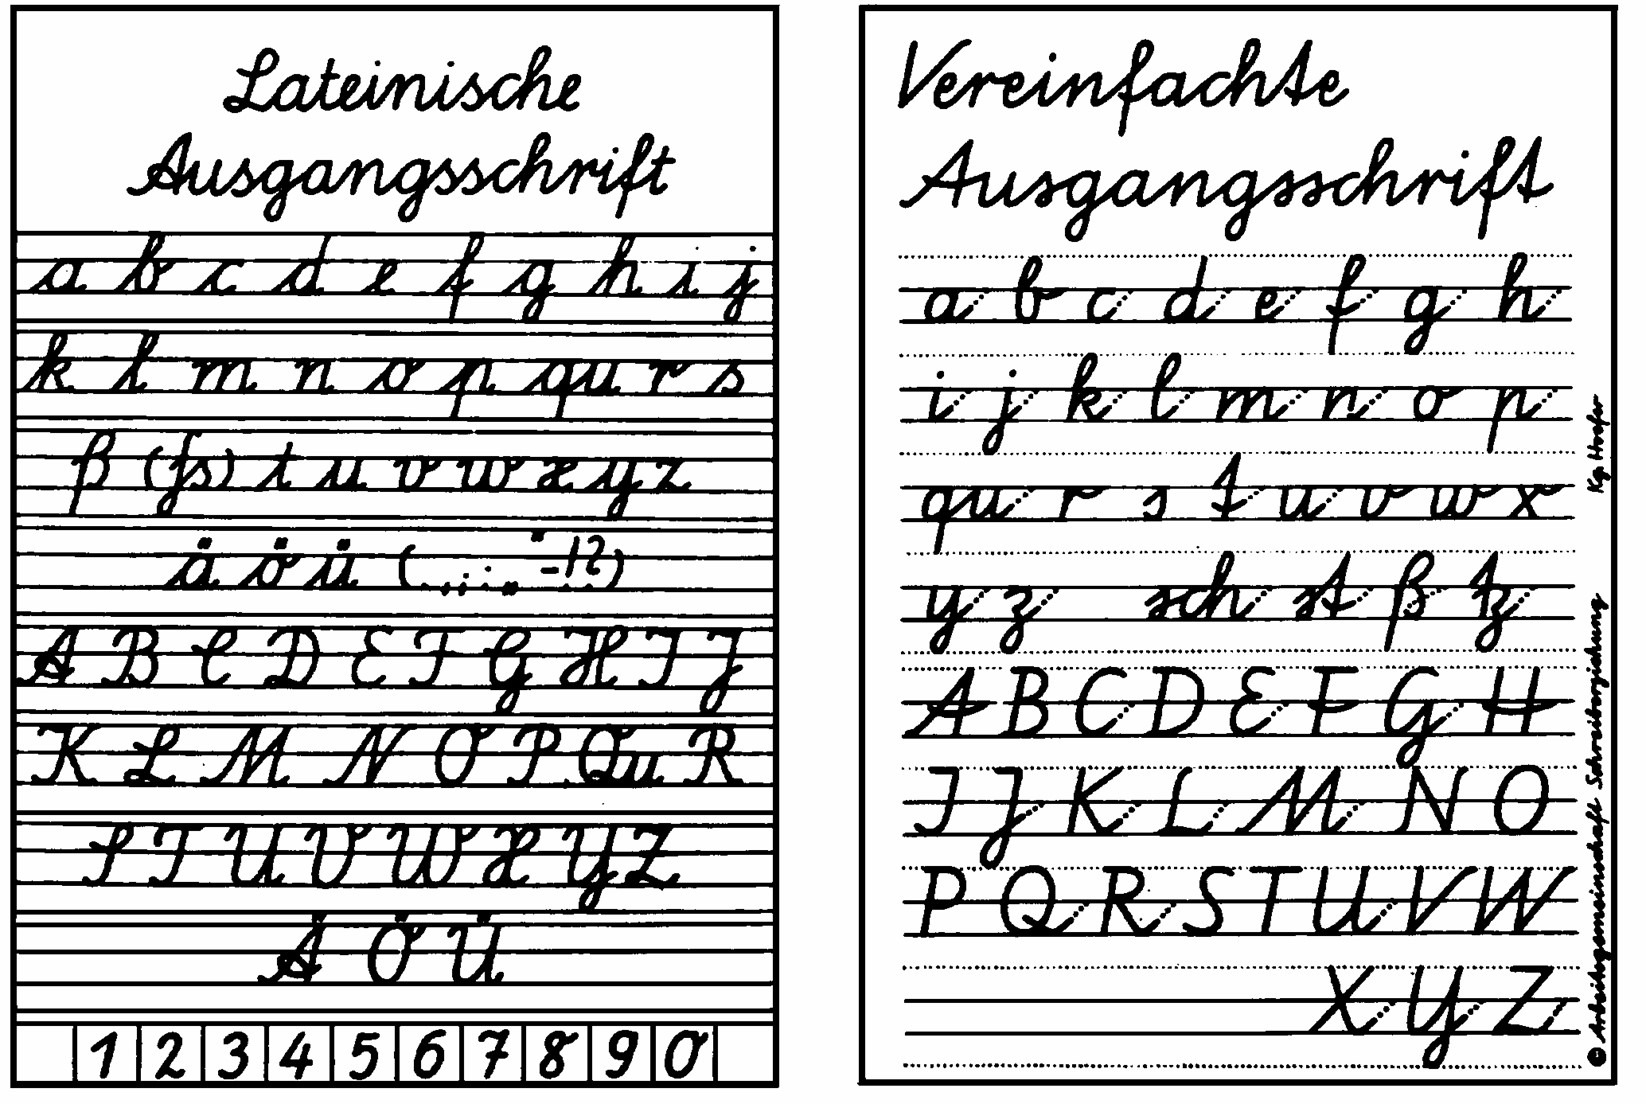 Lateinische
Ausgangsschrift
a b c d e f g h i j
k l m n o p qu r s
ß (ſs) t u v w x y z
ä ö ü (. , ; : „ " - ! ?)
A B C D E F G H I J
K L M N O P Qu R
S T U V W X Y Z
Ä Ö Ü
1 2 3 4 5 6 7 8 9 0
Vereinfachte
Ausgangsschrift
a b c d e f g h
i j k l m n o p
qu r s t u v w x
y z sch st ß tz
A B C D E F G H
I J K L M N O
P Q R S T U V W
X Y Z
© Arbeitsgemeinschaft Schreiberziehung